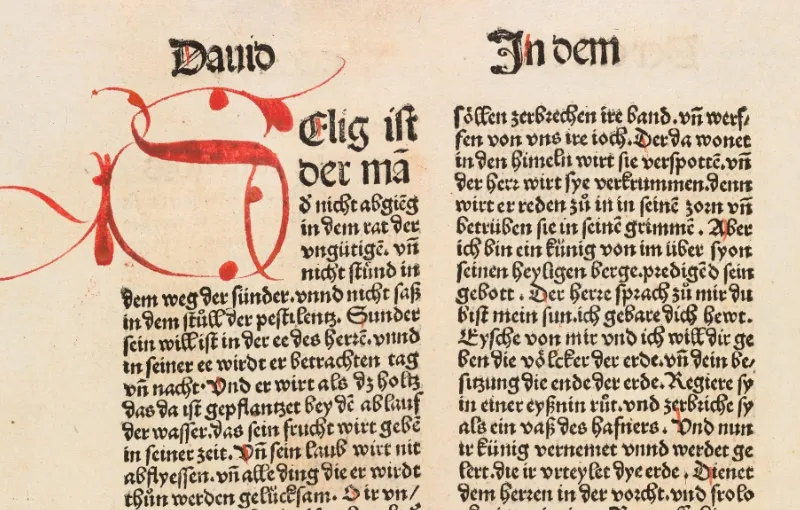 Dauid
SElig ist
der mā
d̕ nicht abgieg
in dem rat der
vngütigē. vn̄
nicht stůnd in
dem weg der sünder. vnnd nicht saß
in dem stůll der pestilentz. Sunder
sein will ist in der ee des herrē. vnnd
in seiner ee wirdt er betrachten tag
vn̄ nacht. Vnd er wirt als dz holtz
das da ist gepflantzet bey dē ablauf
der wasser. das sein frucht wirt gebē
in seiner zeit. Vn̄ sein laub wirt nit
abflyessen. vn̄ alle ding die er wirdt
thůn werden gelücksam. O ir vn/
In dem
söllen zerbrechen ire band. vn̄ werf/
fen von vns ire ioch. Der da wonet
in den himeln wirt sie verspottē. vn̄
der herr wirt sye verkrummen. denn
wirt er reden zů in in seinē zorn vn̄
betrüben sie in seinē grimmē. Aber
ich bin ein künig von im über syon
seinen heyligen berge. predigēd sein
gebott. Der herre sprach zů mir du
bist mein sun. ich gebare dich hewt.
Eysche von mir vnd ich will dir ge
ben die völcker der erde. vn̄ dein be/
sitzung die ende der erde. Regiere sy
in einer eyßnin růt. vnd zerbriche sy
als ein vaß des hafners. Vnd nun
ir künig vernemet vnnd werdet ge
lert. die ir vrteylet dye erde. Dienet
dem herren in der vorcht. vnd frolo